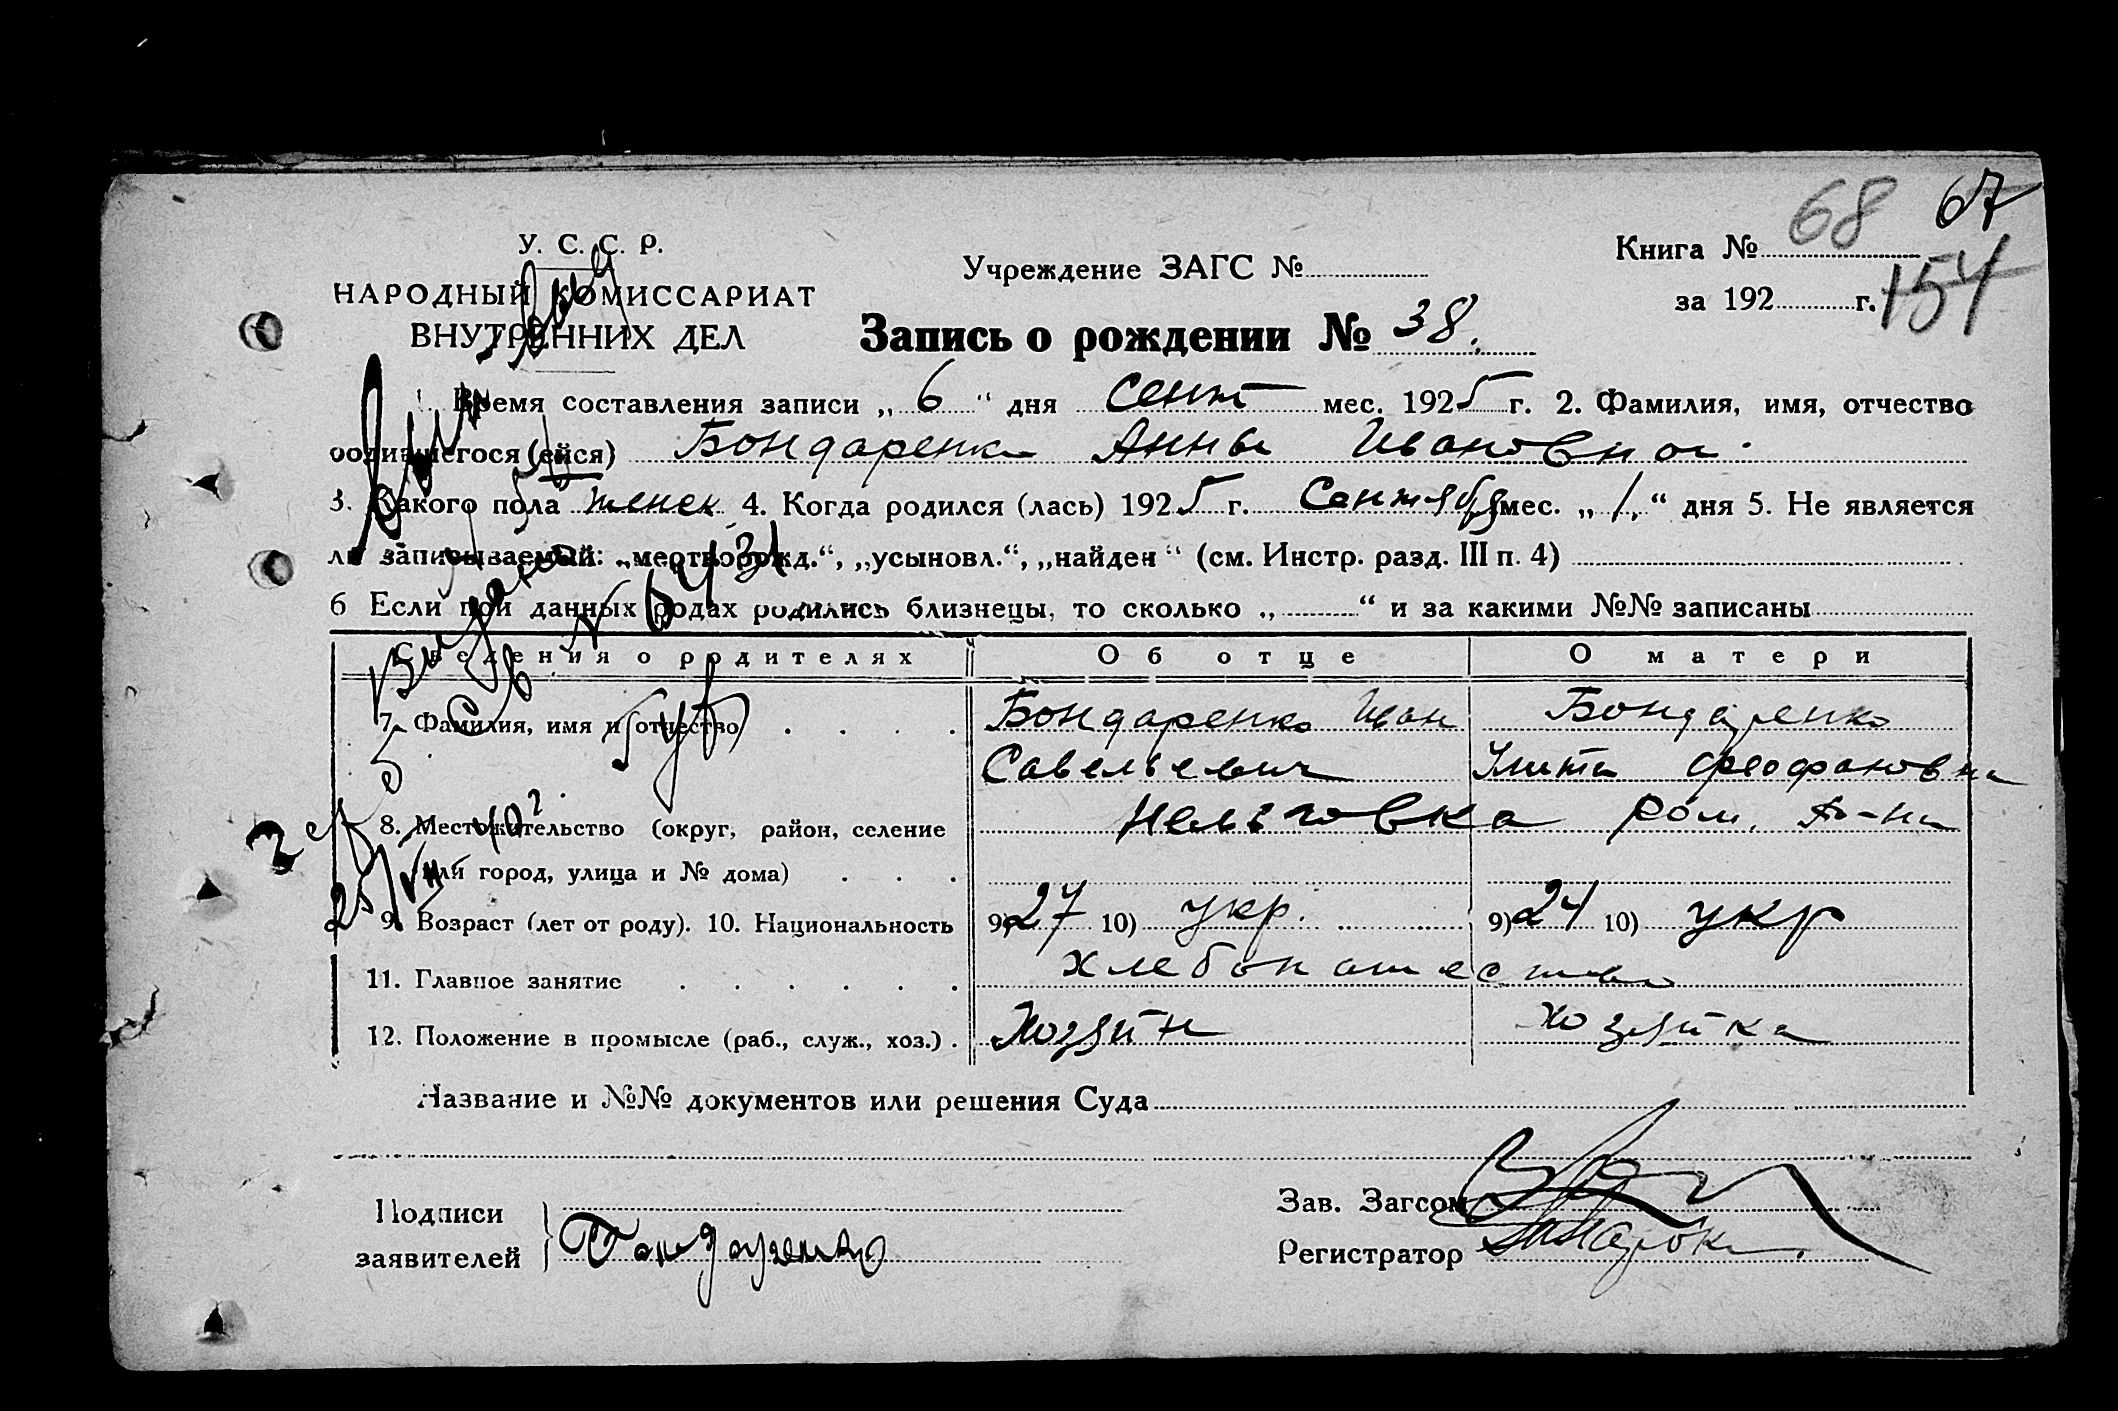 68 67
154
У. С. С. Р.
НАРОДНЫЙ КОМИССАРИАТ
ВНУТРЕННИХ ДЕЛ
Учреждение ЗАГС №
Книга №
за 192 г.
Запись о рождении № 38.
1. Время составления записи „ 6 “ дня сент мес. 1925 г. 2. Фамилия, имя, отчество
родившегося (ейся) Бондаренко Анны Ивановна
3. Какого пола женск 4. Когда родился (лась) 1925 г. Сентября мес. „ 1. “ дня 5. Не является
ли записываемый: „мертворожд.“, „усыновл.“, „найден“ (см. Инстр. разд. III п. 4)
6 Если при данных родах родились близнецы, то сколько „ “ и за какими №№ записаны
Сведения о родителях Об отце О матери
7. Фамилия, имя и отчество Бондаренко Иван Бондаренко
Савельевич Улита Феофановна
8. Местожительство (округ, район, селение
или город, улица и № дома)
9. Возраст (лет от роду). 10. Национальность 9) 27 10) укр. 9) 24 10) укр
11. Главное занятие хлебопашество
12. Положение в промысле (раб., служ., хоз.) Хозяин хозяйка
Название и №№ документов или решения Суда
Подписи
заявителей Бондаренко
Зав. Загсом
Регистратор